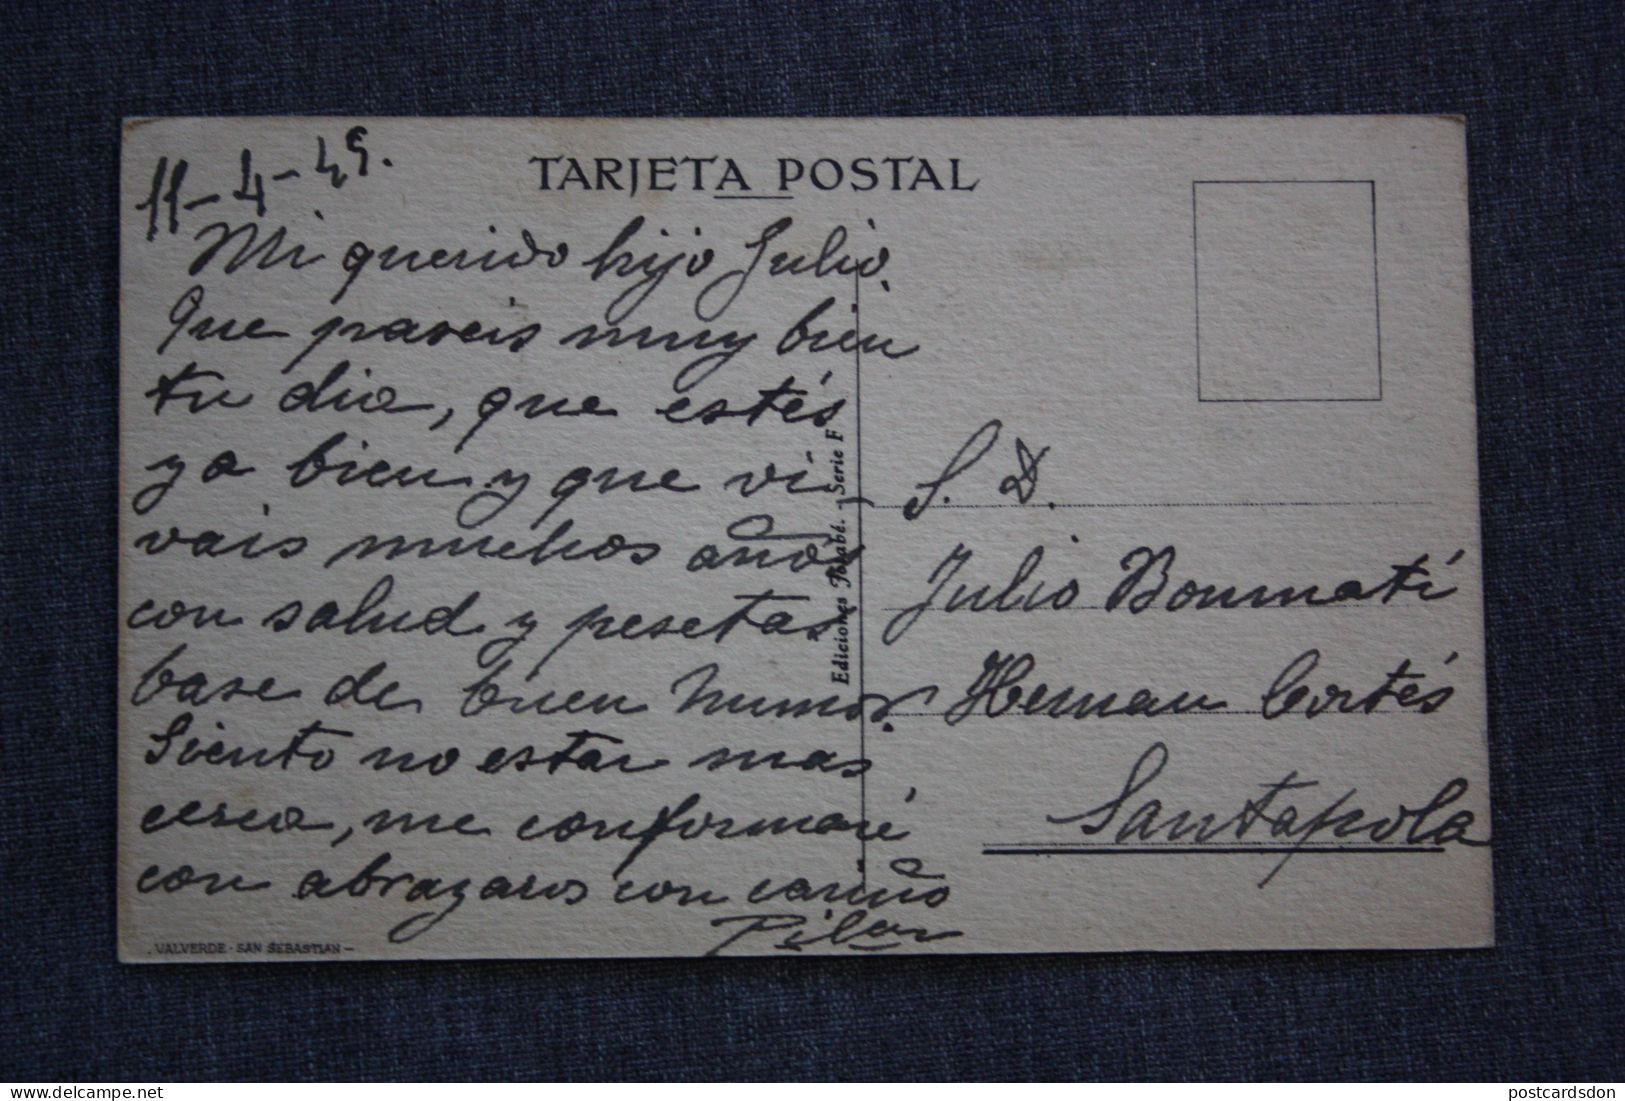 11-4-49.
TARJETA POSTAL
Mi querido hijo Julio.
Que paseis muy bien
tu dia, que estés
ya bien y que vi-
vais muchos años
con salud y pesetas
base de buen humor.
Siento no estar mas
cerca, me conformaré
con abrazaros con cariño
Pilar
VALVERDE - SAN SEBASTIAN -
Ediciones Serie F
S. D.
Julio Bonmatí
Hernan Cortés
Santapola
postcardsdon